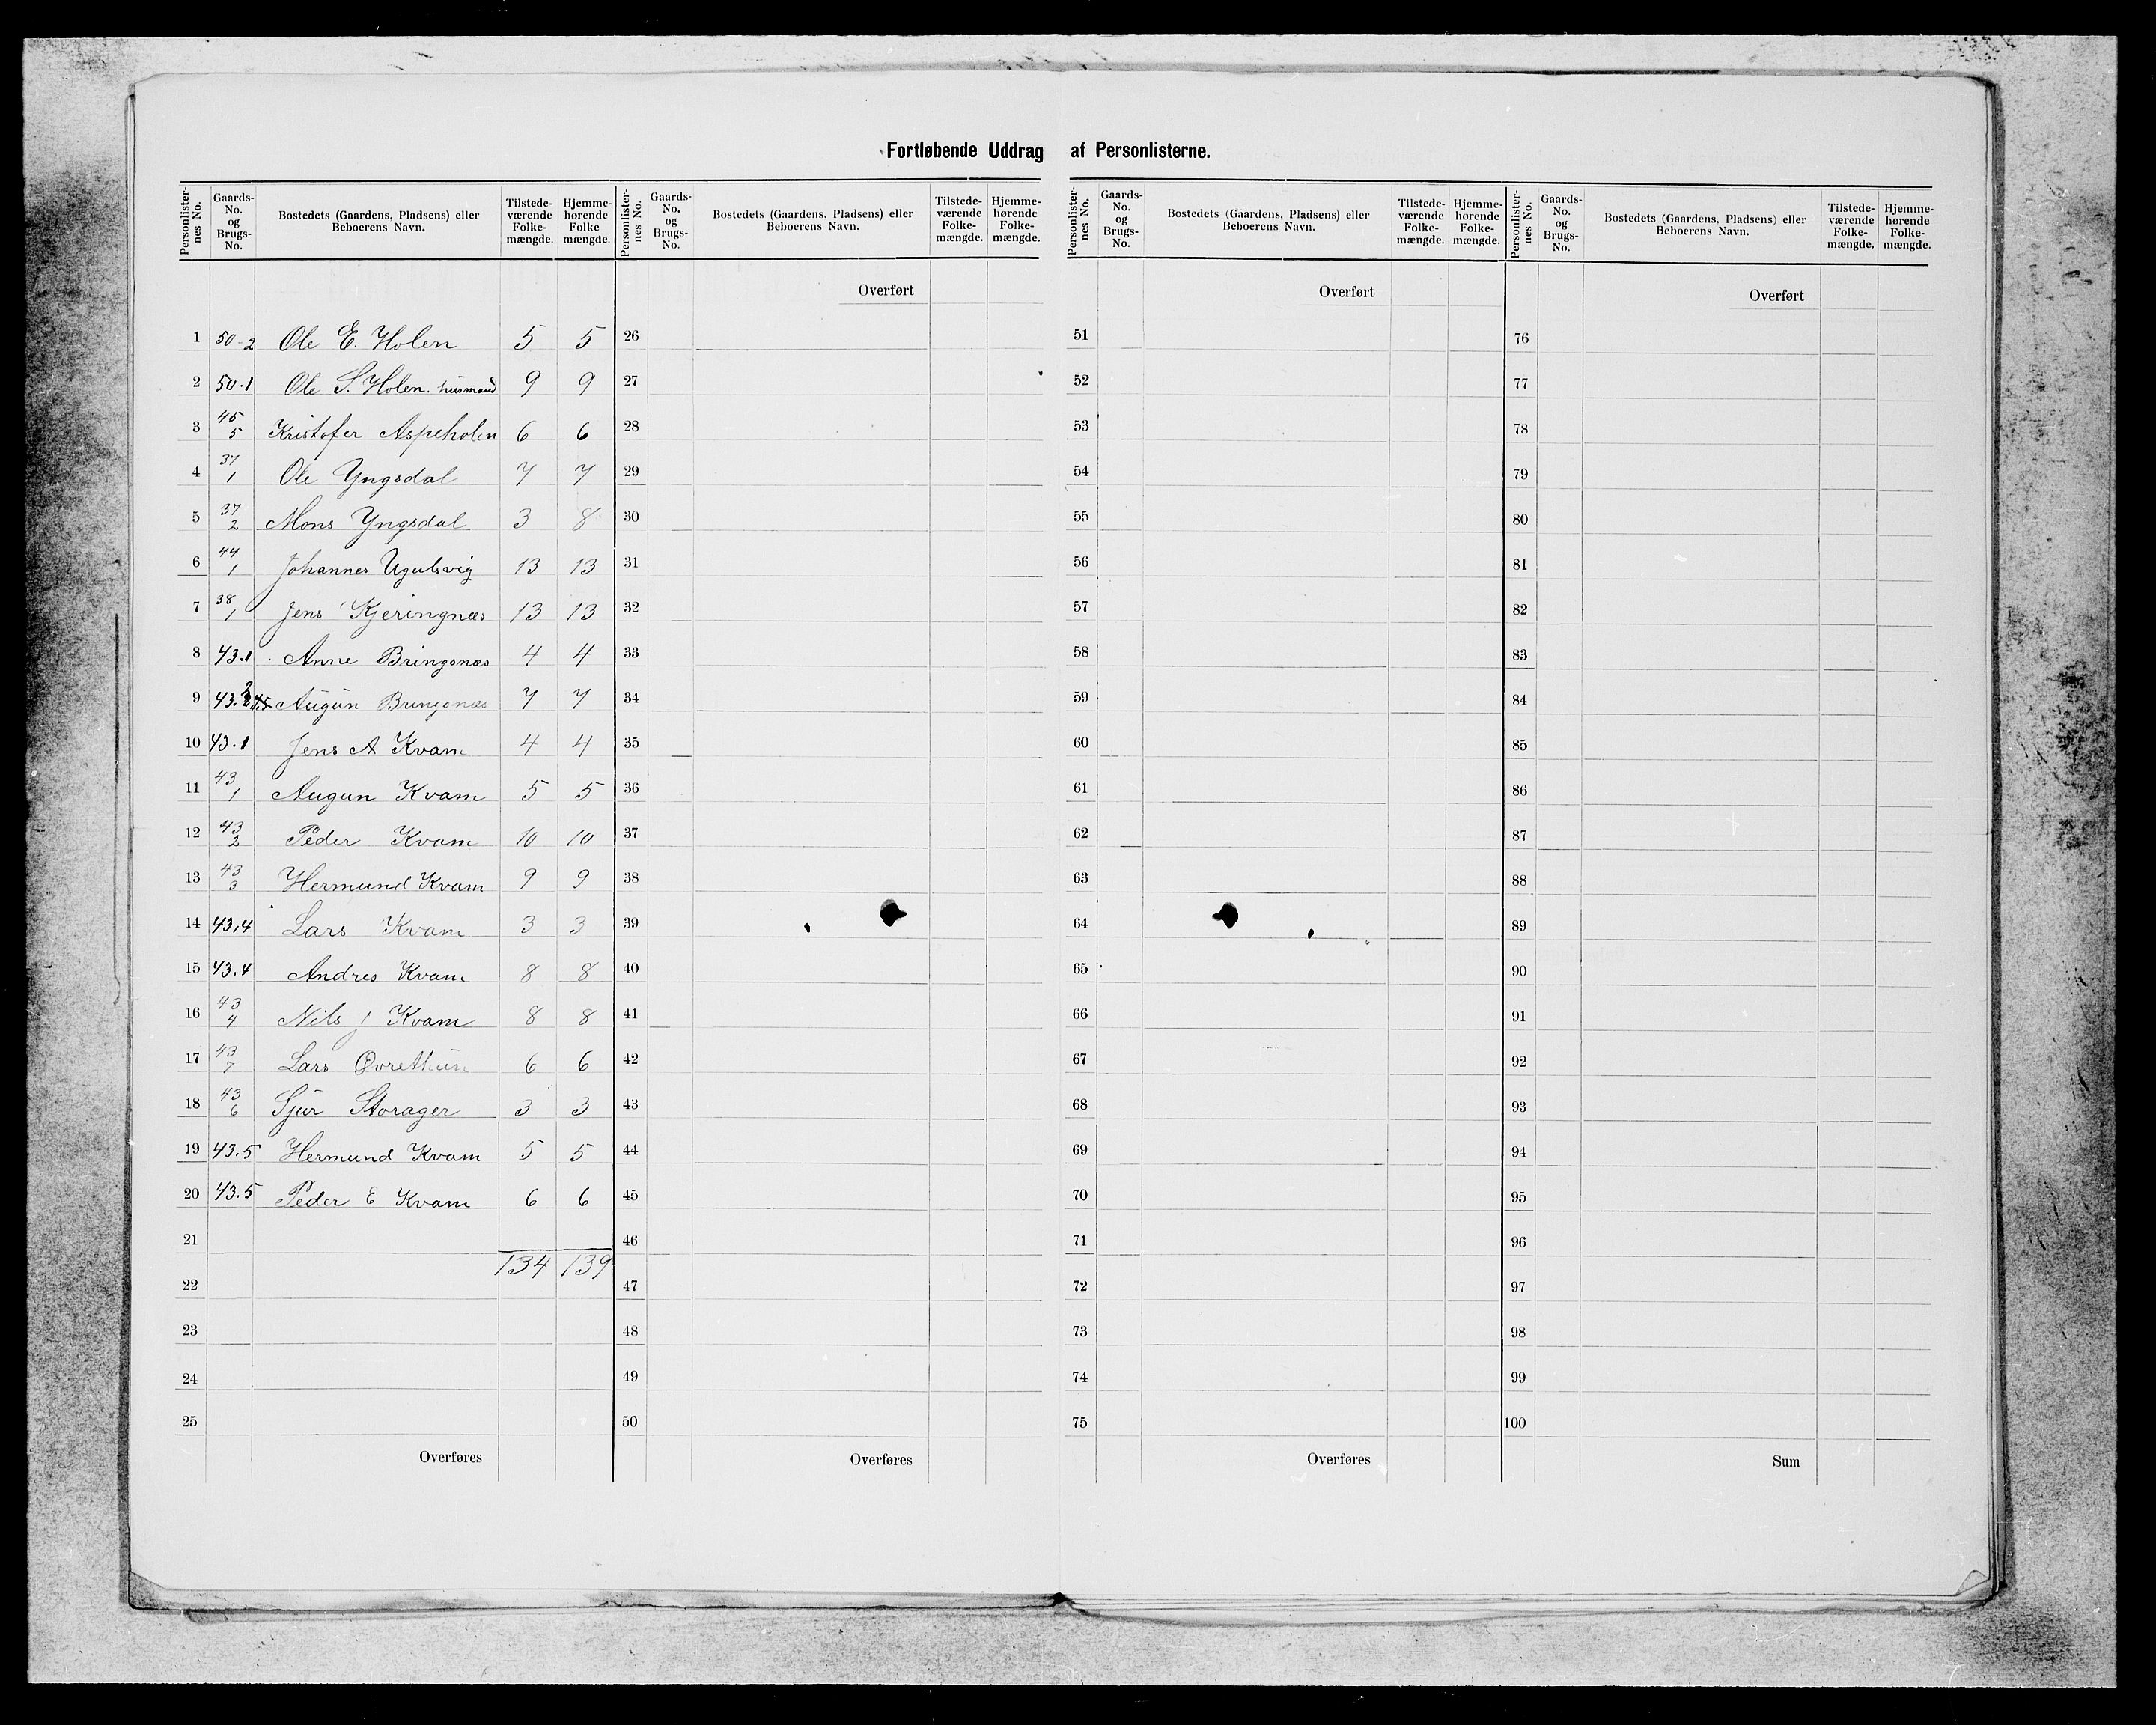 Fortløbende Uddrag af Personlisterne.
Personlister-nes No. | Gaards-No. og Brugs-No. | Bostedets (Gaardens, Pladsens) eller Beboerens Navn. | Tilstede-værende Folke-mængde. | Hjemme-hørende Folke mængde.
Personlister-nes No. | Gaards-No. og Brugs-No. | Bostedets (Gaardens, Pladsens) eller Beboerens Navn. | Tilstede-værende Folke-mængde. | Hjemme-hørende Folke-mængde.
Personlister-nes No. | Gaards-No. og Brugs-No. | Bostedets (Gaardens, Pladsens) eller Beboerens Navn. | Tilstede-værende Folke-mængde. | Hjemme-hørende Folke-mængde.
Personlister-nes No. | Gaards-No. og Brugs-No. | Bostedets (Gaardens, Pladsens) eller Beboerens Navn. | Tilstede-værende Folke-mængde. | Hjemme-hørende Folke-mængde.
Overført Overført Overført
1 50-2 Ole E. Holen 5 5 26 51 76
2 50.1 Ole S. Holen. husmand 9 9 27 52 77
3 45 5 Kristofer Aspeholen 6 6 28 53 78
4 37 1 Ole Yngsdal 7 7 29 54 79
5 37 2 Mons Yngsdal 3 8 30 55 80
6 44 1 Johannes Ugulsvig 13 13 31 56 81
7 38 1 Jens Kjeringnæs 13 13 32 57 82
8 43.1 Anne Bringsnæs 4 4 33 58 83
9 43. Augun Bringsnæs 7 7 34 59 84
10 43.1 Jens A Kvam 4 4 35 60 85
11 43 1 Augun Kvam 5 5 36 61 86
12 43 2 Peder Kvam 10 10 37 62 87
13 43 3 Hermund Kvam 9 9 38 63 88
14 43,4 Lars Kvam 3 3 39 64 89
15 43.4 Andres Kvam 8 8 40 65 90
16 43 4 Nils J Kvam 8 8 41 66 91
17 43 7 Lars Øvrethun 6 6 42 67 92
18 43 6 Sjur Storager 3 3 43 68 93
19 43.5 Hermund Kvam 5 5 44 69 94
20 43.5 Peder E Kvam 6 6 45 70 95
21 46 71 96
134 139
22 47 72 97
23 48 73 98
24 49 74 99
25 50 75 100
Overføres Overføres Overføres Sum